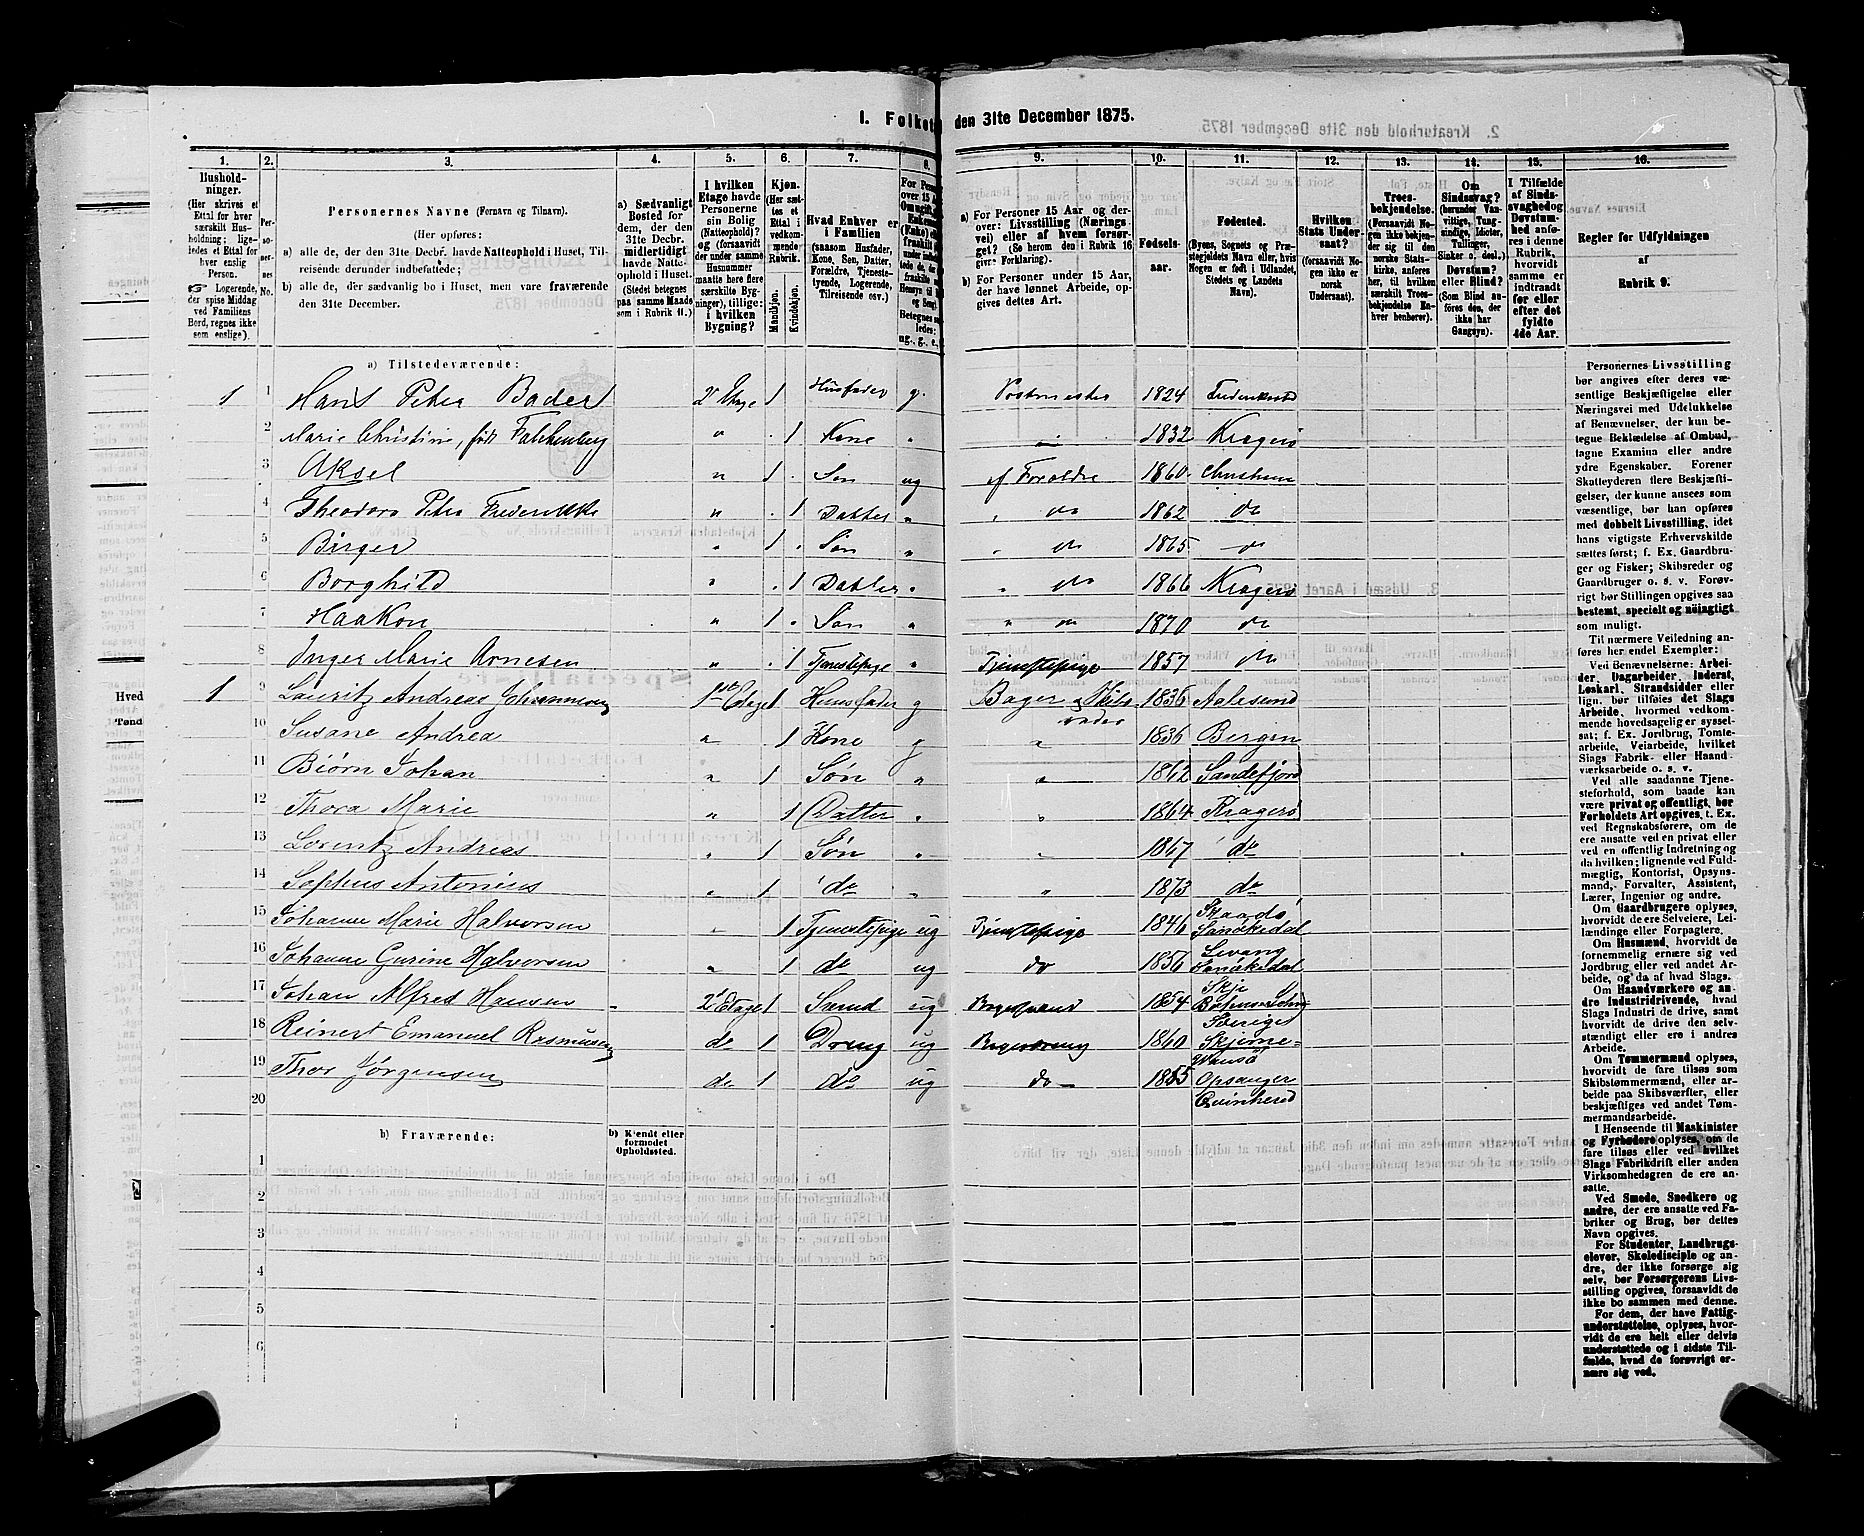 I. Folket den 31te December 1875.
1. 2. 3. 4. 5. 6. 7. 8. 9. 10. 11. 12. 13. 14. 15. 16.
Hushold-
ninger.
(Her skrives et
Ettal for hver
særskilt Hus-
holdning; lige-
ledes et Ettal for
hver enslig
Person.
Logerende,
der spise Middag
ved Familiens
Bord, regnes ikke
som enslige).
Per-
so-
ner-
nes
No.
Personernes Navne (Fornavn og Tilnavn).
(Her opføres:
a) alle de, der den 31te Decbr. havde Natteophold i Huset, Til-
reisende derunder indbefattede;
b) alle de, der sædvanlig bo i Huset, men vare fraværende
den 31te December.
a) Sædvanligt
Bosted for
dem, der den
31te Decbr.
midlertidigt
havde Natte-
ophold i Huset.
(Stedet betegnes
paa samme Maade
som i Rubrik 11.)
I hvilken
Etage havde
Personerne
sin Bolig
(Natteophold)?
og (forsaavidt
der under samme
Husnummer
maatte høre flere
særskilte Byg-
ninger), tillige:
i hvilken
Bygning?
Kjøn.
(Her sæt-
tes et
Ettal i
vedkom-
mende
Rubrik.
Mandkjøn.
Kvindekjøn.
Hvad Enhver er
i Familien
(saasom Husfader,
Kone, Søn, Datter,
Forældre, Tjeneste-
tyende, Logerende,
Tilreisende osv.)
a) For Personer 15 Aar og der-
over: Livsstilling (Nærings-
vei) eller af hvem forsør-
get? (Se herom den i Rubrik 16
givne Forklaring).
b) For Personer under 15 Aar,
der have lønnet Arbeide, op-
gives dettes Art.
Fødsels-
aar.
Fødested.
(Byens, Sognets og Præ-
stegjeldets Navn, eller hvis
Nogen er født i Udlandet,
Stedets og Landets
Navn).
Hvilken
Stats Under-
saat?
(forsaavidt No-
gen ikke er
norsk
Undersaat).
Troes-
bekjendelse.
(Forsaavidt No-
gen ikke bekjen-
der sig til den
norske Stats-
kirke, anføres
her, til hvilken
særskilt Troes-
bekjendelse En-
hver henhører).
Om
Sindssvag?
(herunder Van-
vittige, Tung-
sindige, Idioter,
Tullinger,
Sinker o. desl.)
Døvstum?
eller Blind?
(Som Blind an-
føres den, der
ikke har
Gangsyn).
I Tilfælde
af Sinds-
svaghed og
Døvstum-
hed anfø-
res i denne
Rubrik,
hvorvidt
samme er
indtraadt
før eller
efter det
fyldte
4de Aar.
Regler for Udfyldningen
af
Rubrik 9.
a) Tilstedeværende:
1 1 Hans Peter Bader 2 Etage 1 Husfader g. Postmester 1824
2 Marie Christine, født Falkenberg " 1 Kone " 1832 Kragerø
3 Aksel " 1 Søn ug af Forældre 1860
4 Theodora Petra Frederikke " 1 Datter " " do 1862 do
5 Birger " 1 Søn " " do 1865 do
6 Borghild " 1 Datter " " do 1866 Kragerø
7 Haakon " 1 Søn " " do 1870 do
8 Inger Marie Arnesen " 1 Tjenestepige " Tjenestepige 1857 do
1 9 Lauritz Andreas Johannesen 1ste Etage 1 Huusfader g Bager og 1836 Aalesund
10 Susane Andrea " 1 Kone g " 1836 Bergen
11 Biørn Johan " 1 Søn " " 1862 Sandefjord
12 Thora Marie " 1 Datter " " 1864 Kragerø
13 Lorentz Andreas " 1 Søn " " 1867 do
14 Sophus Antonius " 1 do " " 1873 do
15 Johanne Marie Halvorsen " 1 Tjenestepige ug Tjenestepige 1846 Skaadø
Sanøkedal
16 Johanne Gurine Halvorsen " 1 do ug do 1856 Levang
Sanøkedal
17 Johan Alfred Hansen 2 Etage 1 Svend ug Bagersvend 1854
Sverige
18 Reinert Emanuel Rasmussen do 1 Dreng ug Bagerdreng 1860
19 Thor Jørgensen do 1 do ug do 1855 Opsanger
Qvinherred
20
b) Fraværende:
b) Kjendt eller
formodet
Opholdssted.
1
2
3
4
5
6
Personernes Livsstilling
bør angives efter deres væ-
sentlige Beskjæftigelse eller
Næringsvei med Udelukkelse
af Benævnelser, der kun be-
tegne Beklædelse af Ombud,
tagne Examina eller andre
ydre Egenskaber. Forener
Skatteyderen flere Beskjæfti-
gelser, der kunne ansees som
væsentlige, bør han opføres
med dobbelt Livsstilling, idet
hans vigtigste Erhvervskilde
sættes først; f. Ex. Gaardbru-
ger og Fisker; Skibsreder og
Gaardbruger o. s. v. Forøv-
rigt bør Stillingen opgives saa
bestemt, specielt og nöiagtigt
som muligt.
Til nærmere Veiledning an-
føres her endel Exempler:
Ved Benævnelserne: Arbei-
der, Dagarbeider, Inderst,
Løskarl, Strandsidder eller
lign. bør tilføies det Slags
Arbeide, hvormed vedkom-
mende hovedsagelig er syssel-
sat; f. Ex. Jordbrug, Tomte-
arbeide, Veiarbeide, hvilket
Slags Fabrik- eller Haand-
værksarbeide o. s. v.
Ved alle saadanne Tjene-
steforhold, som baade kan
være privat og offentligt, bør
Forholdets Art opgives, t. Ex.
ved Regnskabsførere, om de
ere ansatte ved en privat eller
ved en offentlig Indretning og
da hvilken; lignende ved Fuld-
mægtig, Kontorist, Opsyns-
mand, Forvalter, Assistent,
Lærer, Ingeniør og andre.
Om Gaardbrugere oplyses,
hvorvidt de ere Selveiere, Lei-
lændinge eller Forpagtere.
Om Husmænd, hvorvidt de
fornemmelig ernære sig ved
Jordbrug eller ved andet Ar-
beide, og da af hvad Slags.
Om Haandværkere og an-
dre Industridrivende, hvad
Slags Industri de drive, samt
hvorvidt de drive den selv-
stændigt eller ere i andres
Arbeide.
Om Tømmermænd oplyses,
hvorvidt de fare tilsøs som
Skibstømmermænd, eller ar-
beide paa Skibsværfter, eller
beskjæftiges ved andet Tøm-
mermandsarbeide.
I Henseende til Maskinister
og Fyrbødere oplyses, om de
fare tilsøs eller ved hvilket
Slags Fabrikdrift eller anden
Virksomhedsgren de ere an-
satte.
Ved Smede, Snedkere og
andre, der ere ansatte ved Fa-
briker og Brug, bør dettes
Navn opgives.
For Studenter, Landbrugs-
elever, Skoledisciple og an-
dre, der ikke forsørge sig
selv, bør Forsørgerens Livs-
stilling opgives, forsaavidt de
ikke bo sammen med denne.
For dem, der have Fattig-
understøttelse, oplyses, hvor-
vidt de ere helt eller delvis
understøttede og i sidste Til-
fælde, hvad de forøvrigt er-
nære sig ved.